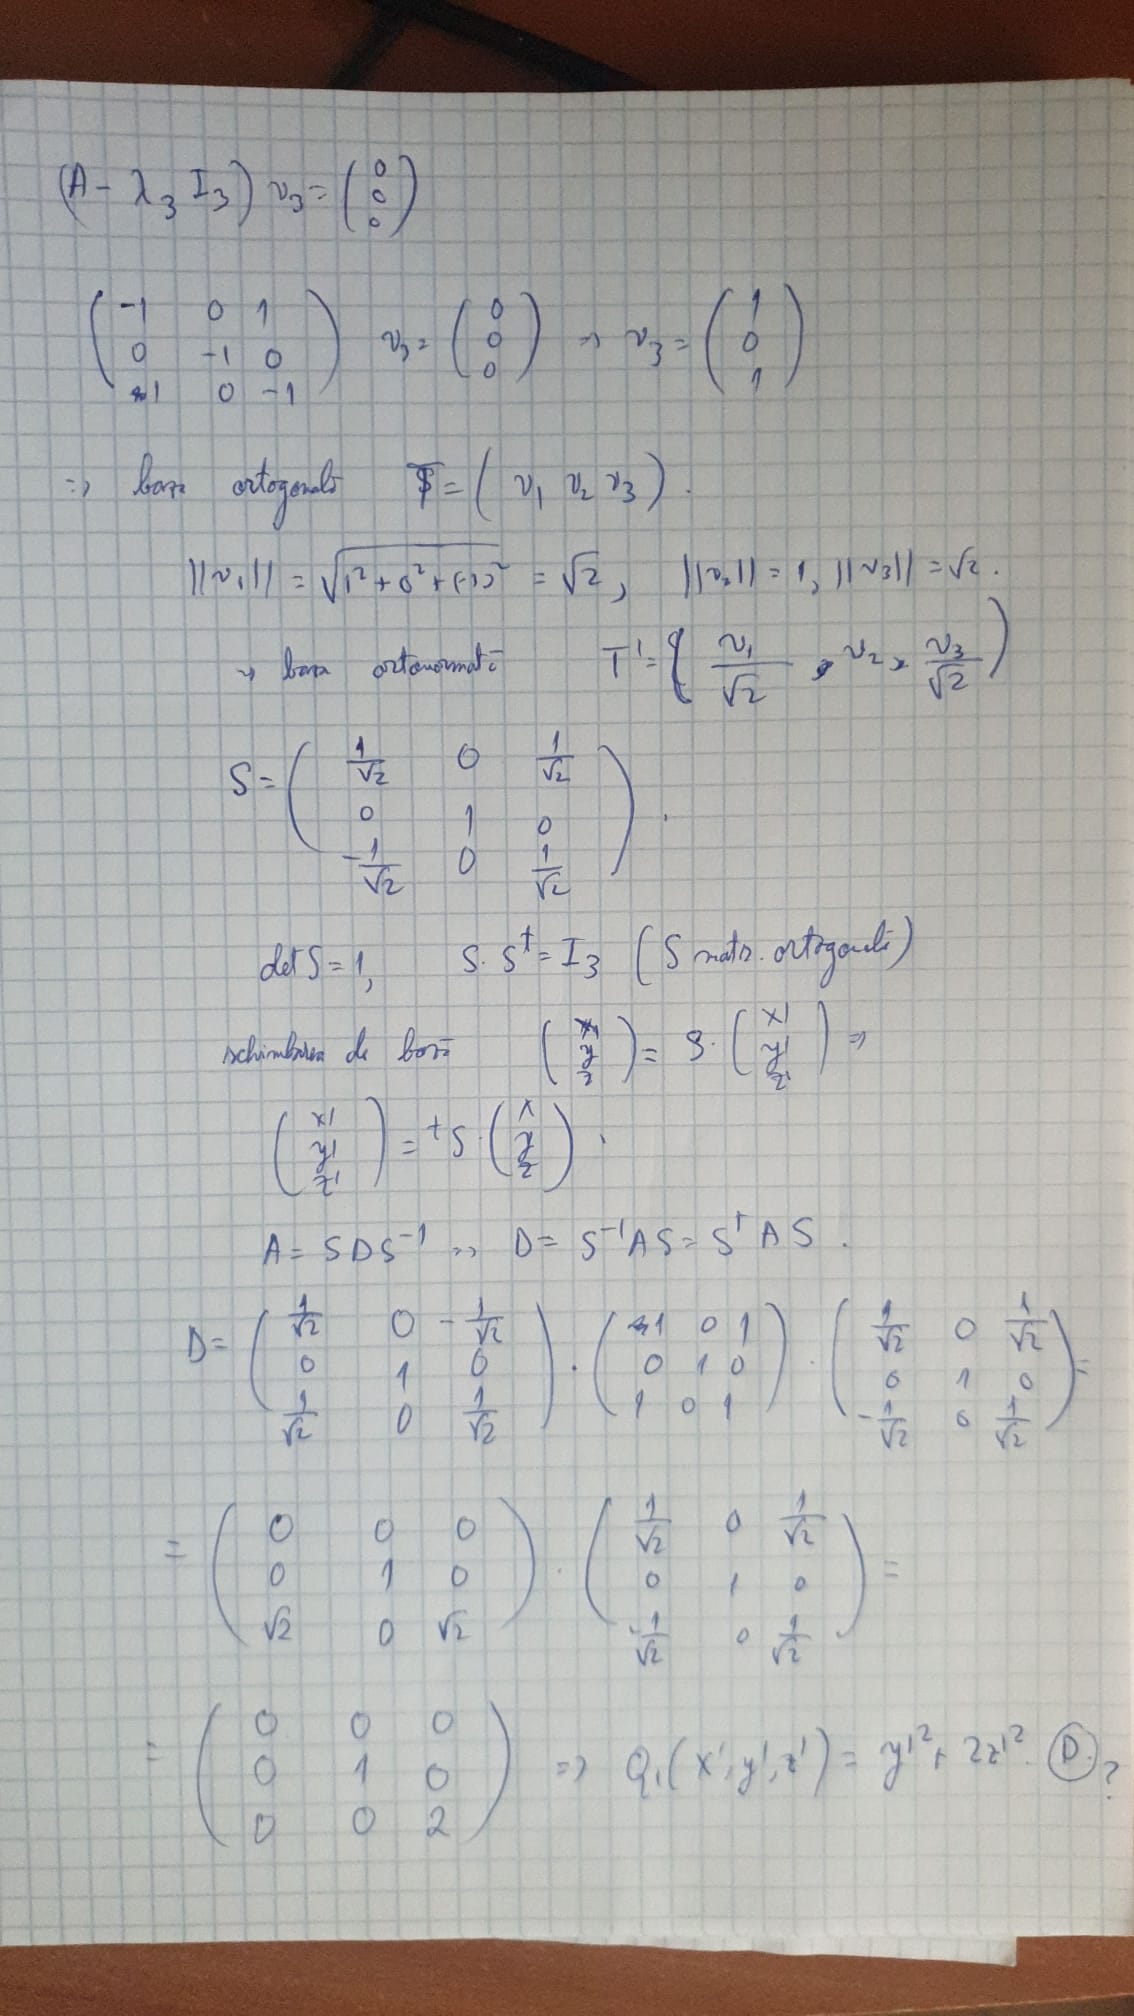 (A - λ₃ I₃) v₃ = (0 0 0)
(-1 0 1
0 -1 0
1 0 -1) v₃ = (0 0 0) ⇒ v₃ = (1 0 1)
⇒ baza ortogonală T = (v₁ v₂ v₃).
||v₁|| = √(1² + 0² + (-1)²) = √2, ||v₂|| = 1, ||v₃|| = √2.
⇒ baza ortonormată T' = (v₁/√2, v₂, v₃/√2)
S = (1/√2 0 1/√2
0 1 0
-1/√2 0 1/√2).
det S = 1, S · Sᵗ = I₃ (S matr. ortogonală)
schimbarea de bază (x y z) = S · (x' y' z') ⇒
(x' y' z') = ᵗS · (x y z).
A = S D S⁻¹ ⇒ D = S⁻¹ A S = Sᵗ A S.
D = (1/√2 0 -1/√2
0 1 0
1/√2 0 1/√2) · (1 0 1
0 1 0
1 0 1) · (1/√2 0 1/√2
0 1 0
-1/√2 0 1/√2) =
= (0 0 0
0 1 0
√2 0 √2) · (1/√2 0 1/√2
0 1 0
-1/√2 0 1/√2) =
= (0 0 0
0 1 0
0 0 2) ⇒ Q₁(x', y', z') = y'² + 2z'². D. ?